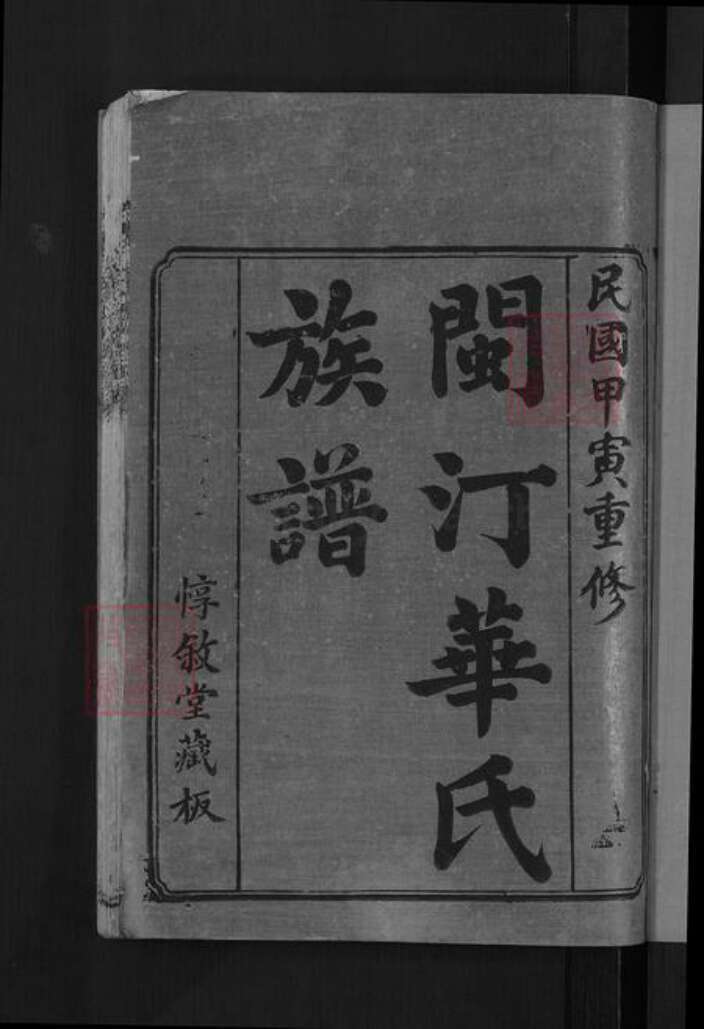 民國甲寅重修
閩汀華氏
族譜
惇敘堂藏板